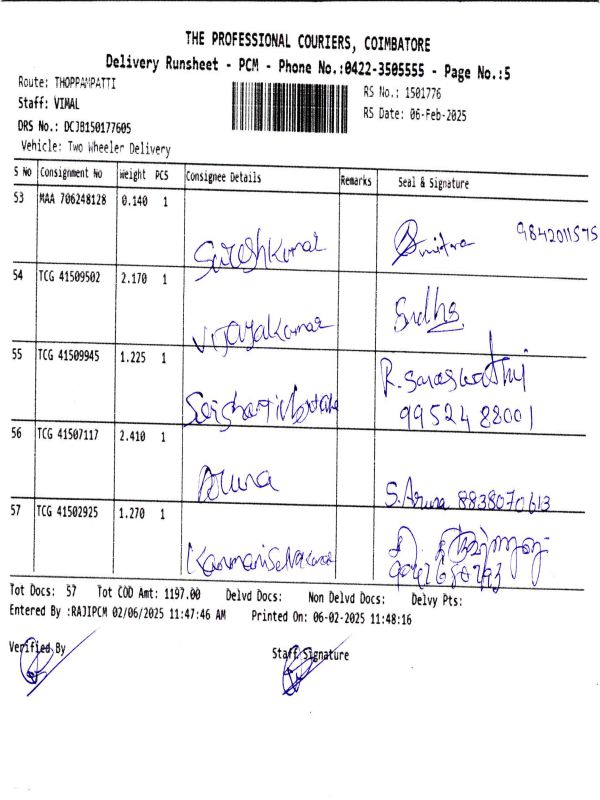 THE PROFESSIONAL COURIERS, COIMBATORE
Delivery Runsheet - PCM - Phone No.:0422-3505555 - Page No.:5
Route: THOPPAMPATTI
RS No.: 1501776
Staff: VIMAL
RS Date: 06-Feb-2025
DRS No.: DCJB150177605
Vehicle: Two Wheeler Delivery
S No Consignment No Weight PCS Consignee Details Remarks Seal & Signature
53 MAA 706248128 0.140 1
Sureshkumar 9842011575
54 TCG 41509502 2.170 1
Vijayakumar Sudha
55 TCG 41509945 1.225 1
R. Saraswathi
99524 88001
56 TCG 41507117 2.410 1
Aruna S. Aruna 8838070613
57 TCG 41502925 1.270 1
Tot Docs: 57 Tot COD Amt: 1197.00 Delvd Docs: Non Delvd Docs: Delvy Pts:
Entered By :RAJIPCM 02/06/2025 11:47:46 AM Printed On: 06-02-2025 11:48:16
Verified By Staff Signature